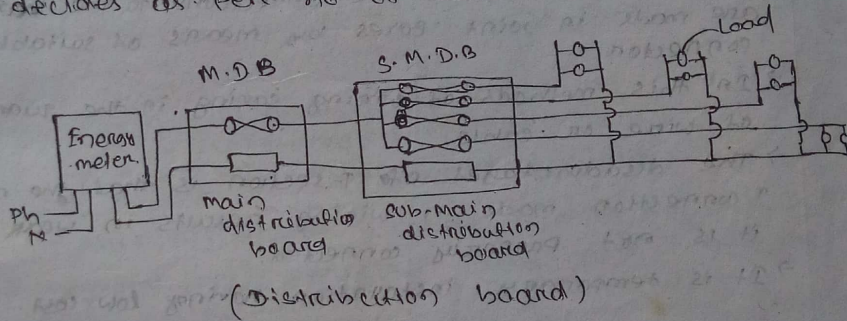 declares as per
Load
M.D.B
S.M.D.B
Energy
meter.
Ph
N
main
distribution
board
sub-main
distribution
board
(Distribution board)